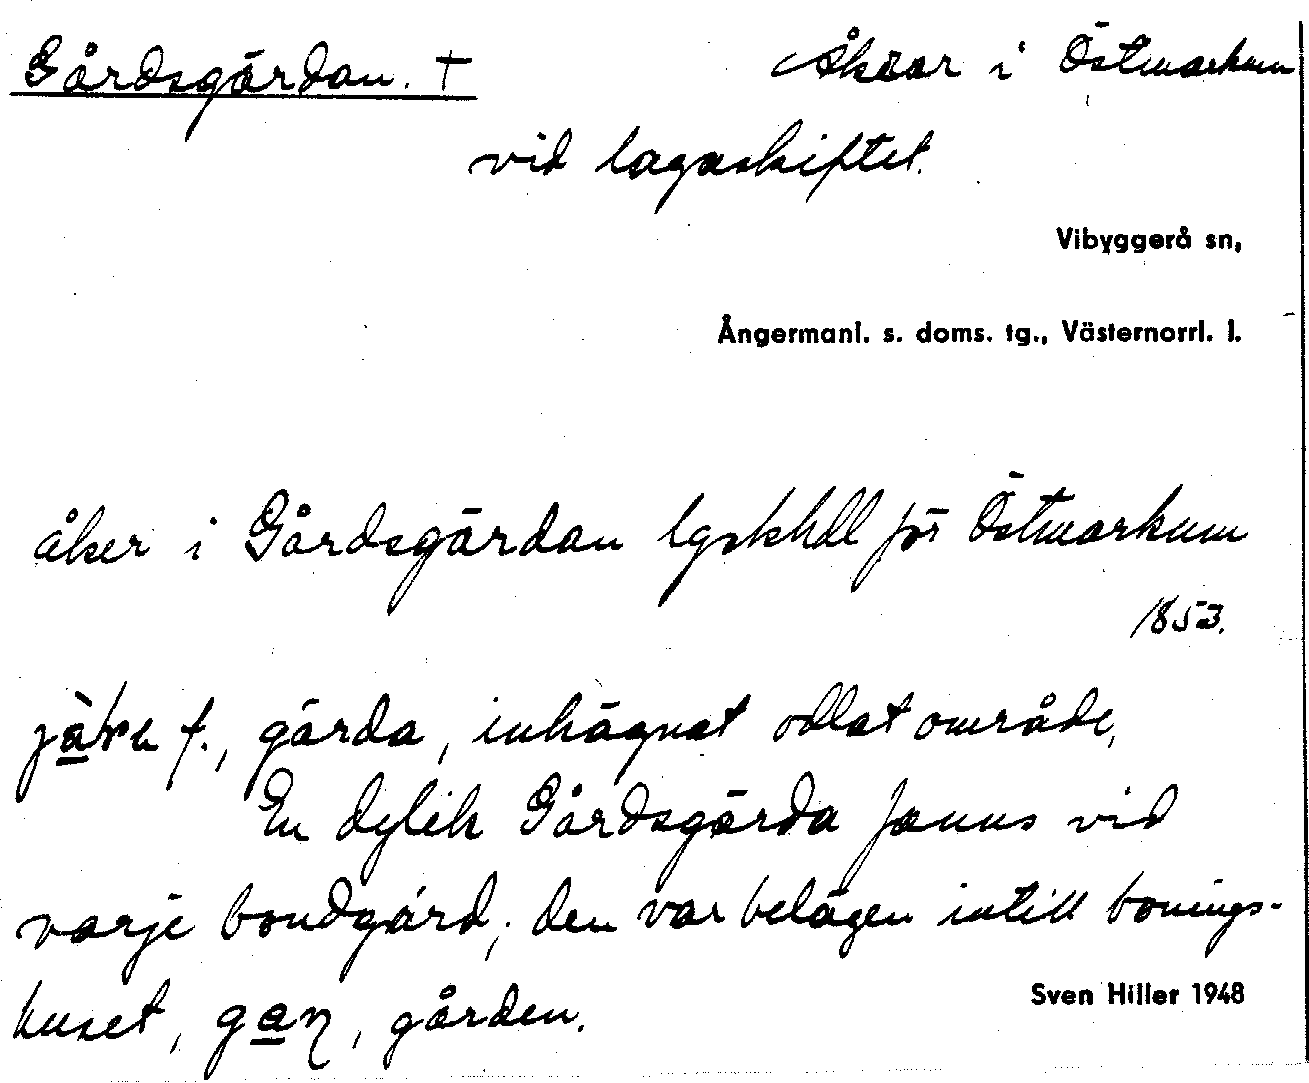 Gårdsgärdan. † Åkrar i Östmarkum
vid lagaskiftet.
Vibyggerå sn,
Ångermanl. s. doms. tg., Västernorrl. l.
åker i Gårdsgärdan lgskhdl för Östmarkum
1853.
f., gärda, inhägnat odlat område,
En dylik Gårdsgärda fanns vid
varje bondgård; den var belägen intill bonings-
huset, gaɳ, gården.
Sven Hiller 1948